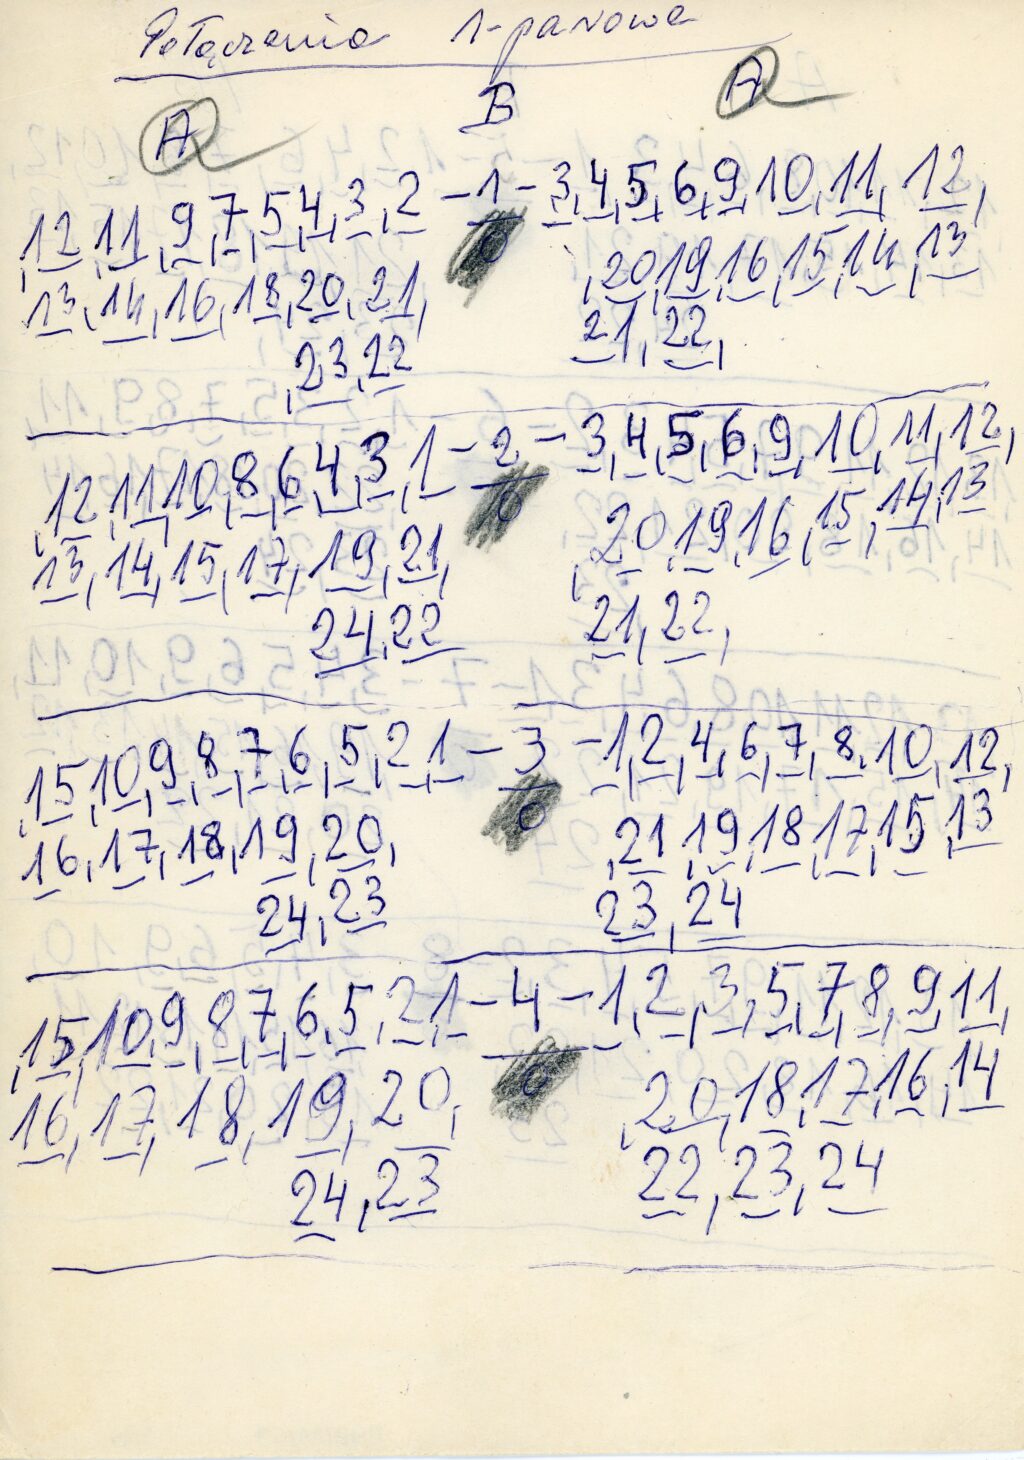 Połączenia 1-parowe
A B A
12, 11, 9, 7, 5, 4, 3, 2 – 1 – 3, 4, 5, 6, 9, 10, 11, 12,
13, 14, 16, 18, 20, 21, 0 20, 19, 16, 15, 14, 13
23, 22 21, 22,
12, 11, 10, 8, 6, 4, 3, 1 – 2 – 3, 4, 5, 6, 9, 10, 11, 12,
13, 14, 15, 17, 19, 21, 0 20, 19, 16, 15, 14, 13
24, 22 21, 22,
15, 10, 9, 8, 7, 6, 5, 2, 1 – 3 – 1, 2, 4, 6, 7, 8, 10, 12,
16, 17, 18, 19, 20, 0 21, 19, 18, 17, 15, 13
24, 23 23, 24
15, 10, 9, 8, 7, 6, 5, 2, 1 – 4 – 1, 2, 3, 5, 7, 8, 9, 11,
16, 17, 18, 19, 20, 0 20, 18, 17, 16, 14
24, 23 22, 23, 24